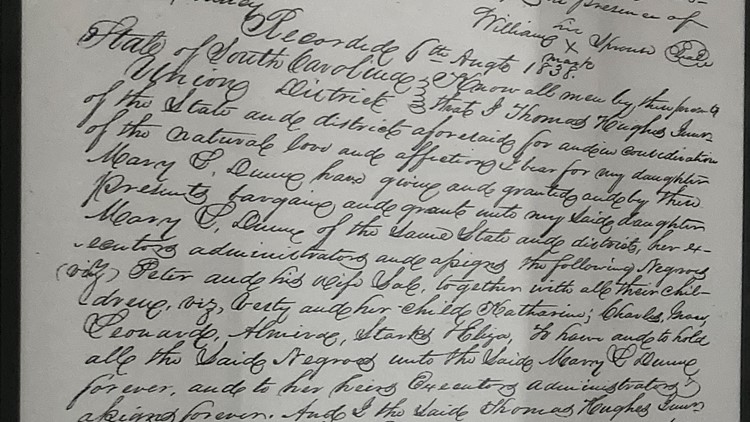 presence of
William X Sprouse Seal
mark
Recorded 6th Augt 1838.
State of South Carolina } Know all men by these presents
Union District } that I Thomas Hughes Senr
of the State and district aforesaid for and in consideration
of the natural love and affection I bear for my daughter
Mary S. Dunn have given and granted and by these
presents bargain and grant unto my said daughter
Mary S. Dunn of the same State and district, her ex-
ecutors administrators and assigns the following Negroes
(viz) Peter and his wife Sal, together with all their chil-
dren, viz, Vesty and her child Katharine; Charles,
Leonard, Almira, Starks Eliza, To have and to hold
all the Said Negroes unto the Said Mary S Dunn
forever, and to her heirs Executors administrators &
assigns forever. And I the Said Thomas Hughes Senr